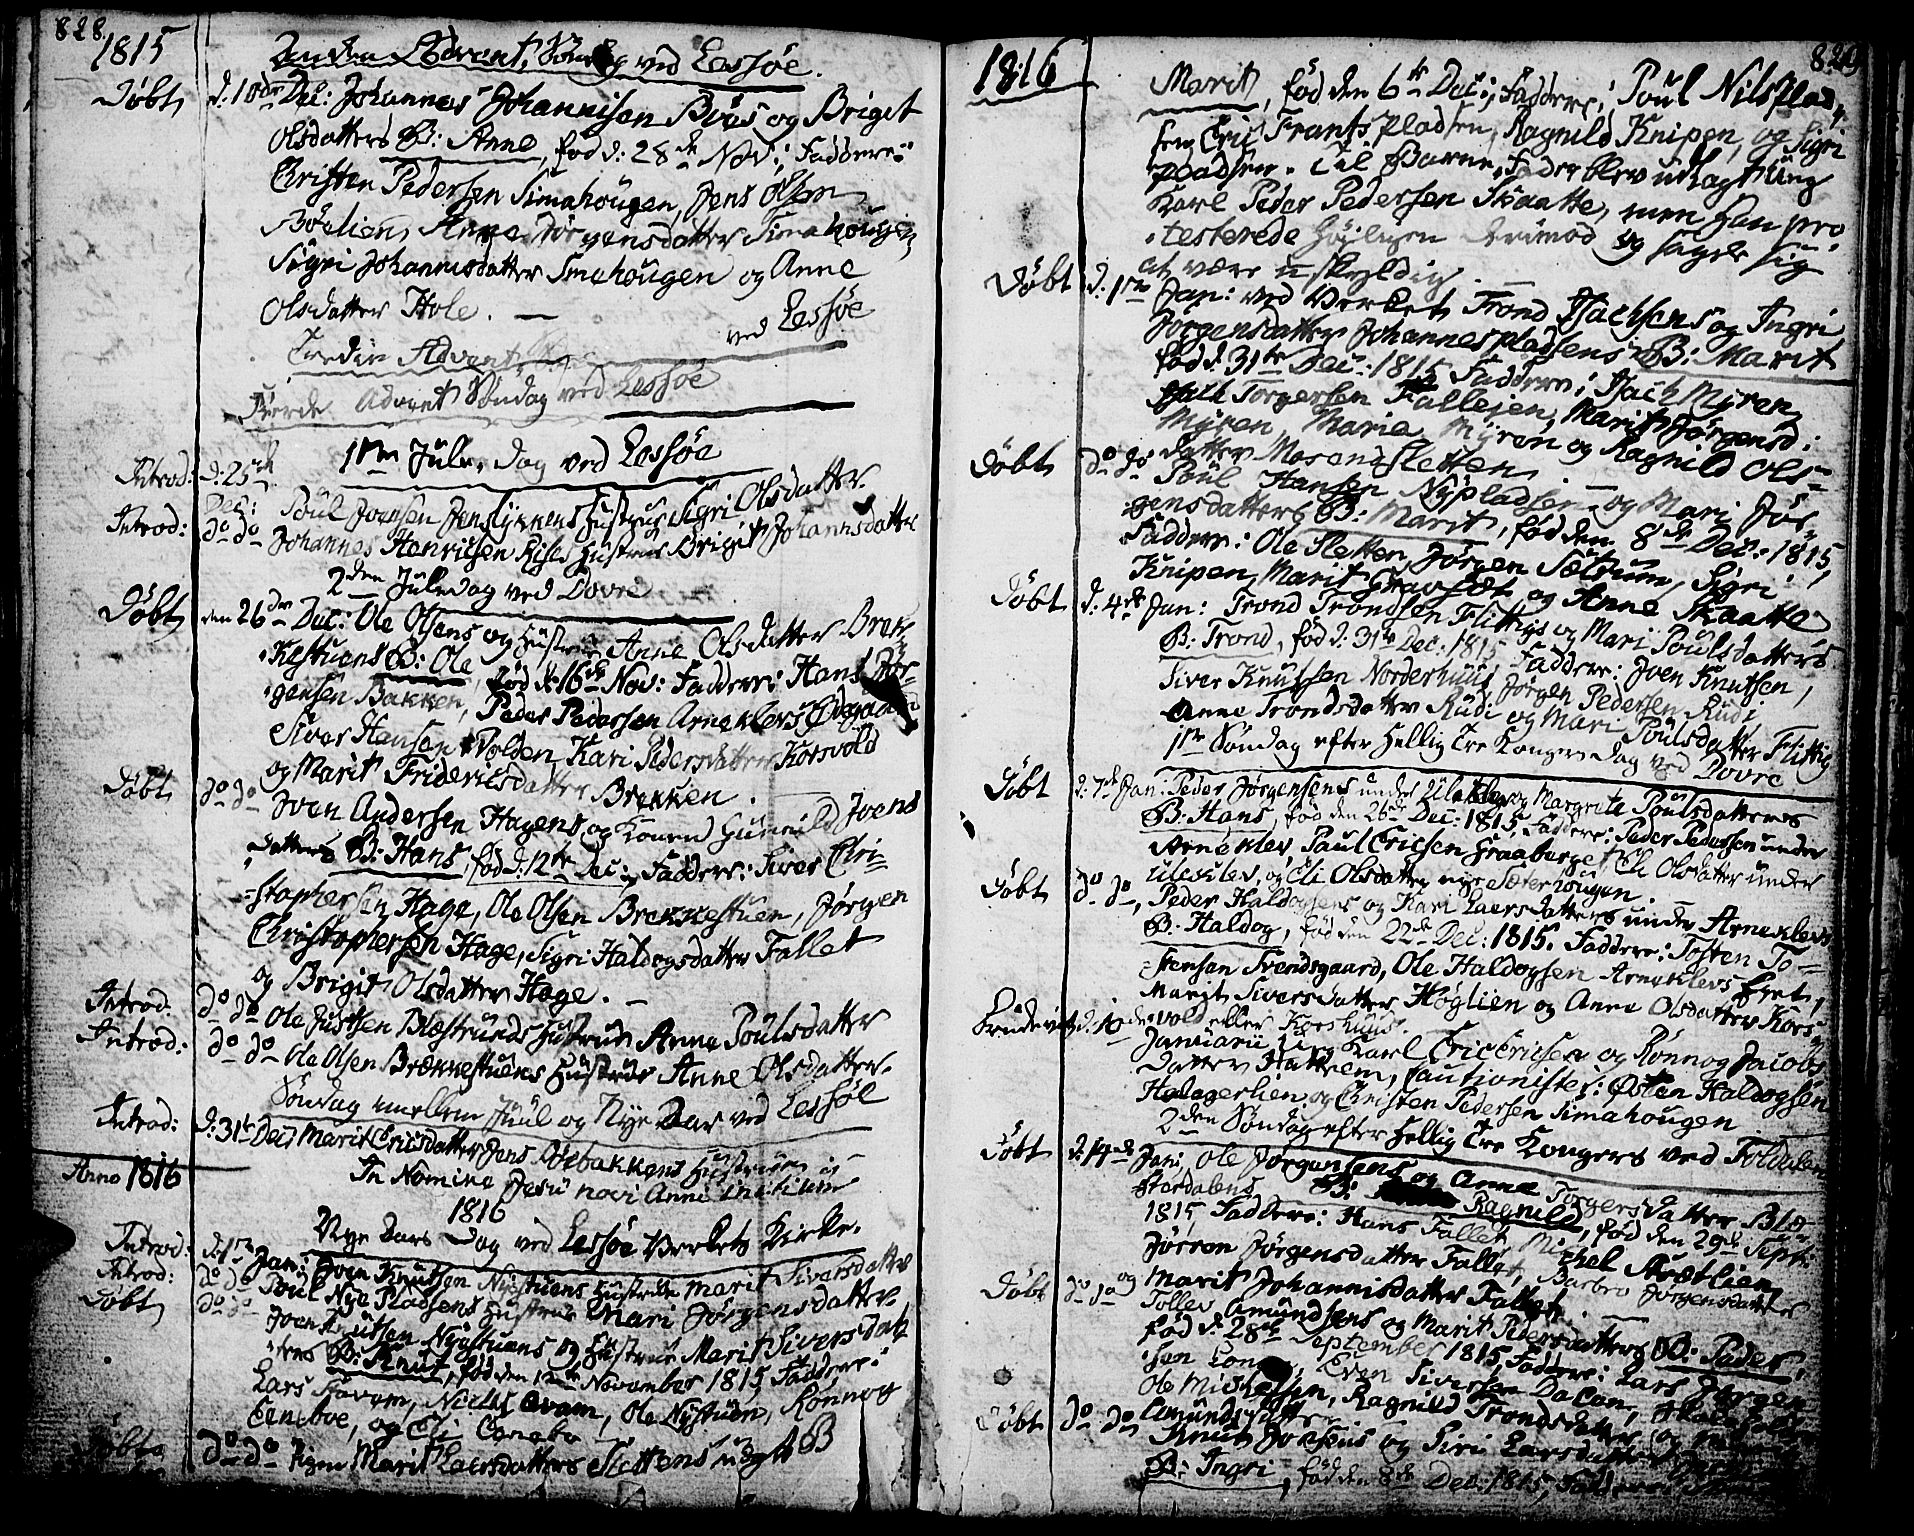 828.
1815
Anden Advent, Søndag ved Lessøe.
Døbt d: 10de Dec: Johannes Johannisen Bües og Briget
Olsdatters B: Anne, fød d: 28de Nov:, Faddere:
Christen Pedersen Simahougen, Jens Olsen
Böelien, Anne Jörgensdatter Simahougen,
Sigri Johannisdatter Simahougen og Anne
Olsdatter Hole.
Tredie Advent, ved Lessøe
Fierde Advent Søndag ved Lessøe
1ste Jule, Dag ved Lessøe
Introd: d: 25de Dec: Poul Joensen Jenslykkens Hustrue Sigri Olsdatter.
Introd: do do Johannes Henrichsen Rises Hustrue Brigit Johannsdatter
2den Juledag ved Dovre
Døbt den 26de Dec: Ole Olsens og Hustrue Anne Olsdatter Bræk-
kestuens B: Ole, fød d: 16de Nov: Faddere: Hans Jör-
gensen Bakken, Peder Pedersen Arneklevs
Siver Hansen Volden, Kari Pedersdatter Korsvold
og Marit Friderichsdatter Brekken.
Døbt do do Joen Andersen Hagens og Konen Gunnild Joens
datters B: Hans, fød d: 12te Dec: Faddere: Siver Chri-
stophersen Hage, Ole Olsen Brekkestuen, Jörgen
Christophersen Hage, Sigri Haldogsdatter Fallet
og Brigit Olsdatter Hage.
Introd: do do Ole Justsen Blæstrunds Hustrue Anne Poulsdatter
Introd: do do Ole Olsen Brækkestuens Hustrue Anne Olsdatter.
Søndag mellem Juul og Nye Aar ved Lessøe
Introd: d: 31te Dec: Marit Ericsdatter Jens Böebakkens Hustrue
Anno 1816 In Nomine Jesu novi Anni initium
1816
Nye Aars Dag ved Lessøe Verkets Kirke.
Introd: d: 1ste Jan: Joen Knutsen Nystuens Hustrue Marit Siversdatter
Introd: do do Poul Nye Pladsens Hustrue Mari Jörgensdatter
Døbt do do Joen Knutsen Nystuens og Hustrue Marit Siversdat-
ters B: Knut, fød den 12te November 1815 Faddere:
Lars Stavem, Niels Avam, Ole Nystuen, Rönnog
Eneboe, og Eli Enebo
Døbt do do Pigen Marit Larsdatters Slettens uægte B
829
1816
Marit, fød den 6te Dec:, Faddere: Poul Nils Plad-
sen, Eric Frants Pladsen, Ragnild Knipen, og Sigri
Pladsen. Til Barne Fader blev udlagt Ung
Karl Peder Pedersen Skaatte, men han pro-
testerede Höyligen derimod og sagde sig
at være uskyldig.
Døbt d: 1ste Jan: ved Verket Trond Isachsens og Ingri
Jörgensdatter Johannespladsens B: Marit
fød d: 31te Dec: 1815 Faddere: Isach Myren,
Torgersen Fallejen, Marit Jörgensd:
Myren, Maria Myren og Ragnild Ols-
datter Mosensletten
Døbt do do Poul Hansen Nypladsen og Mari Jör-
gensdatters B: Marit, fød den 8de Dec: 1815,
Faddere: Ole Sletten, Jörgen Sætrum, Sigri
Knipen, Marit Gravsæt og Anne Skaatte
Døbt d: 4de Jan: Trond Trondsen Flittigs og Mari Poulsdatters
B: Trond, fød d: 31te Dec: 1815, Faddere: Joen Knutsen,
Siver Knutsen Norderhuus, Jörgen Pedersen Rudi
Anne Trondsdatter Rudi og Mari Poulsdatter Flittig
1ste Søndag efter Hellig Tre Kongers Dag ved Dovre
Døbt d: 7de Jan: Peder Jørgensens under Uleklev og Margrete Poulsdatters
B: Hans, fød den 26de Dec: 1815, Faddere: Peder Pedersen under
Arneklev Paul Ericsen Graaberget, Eli Olsdatter under
Uleklev, og Eli Olsdatter nye Sæterhougen.
Døbt do do, Peder Haldogsens og Kari Larsdatters under Arneklevs
B: Haldog, fød den 22de Dec: 1815. Faddere: Tosten To-
stensen Trondsgaard, Ole Haldogsen Arneklevs Eyet,
Marit Siversdatter Høglien og Anne Olsdatter Kors-
vold eller Korshuus.
d: 10de Januarii Ung Karl Eric Ericsen og Rønnog Jacobs
datter Hattrem, Cautionister: Østen Haldogsen
Hologerlien og Christen Pedersen Simahougen
2den Søndag efter Hellig Tre Kongers ved Foldalen
Døbt d: 14de Jan: Ole Jørgensens og Anne Torgersdatter Blo-
stardalens B: Ragnild, fød den 29de Sept:
1815 Faddere: Hans Fallet, Michel Krætlien,
Jörron Jörgensdatter Fallet, Barbro Jörgensdatter
og Marit Johannisdatter Fallet.
Døbt do do Tollev Amundsens og Marit Pedersdatters B: Peder,
fød d: 28de September 1815, Faddere: Lars Jørgen-
sen, Even Siversen Dalen,
Ole Michelsen, Ragnild Trondsdatter
Amundsdatter
Døbt do do Knut Joensens og Siri Larsdatter
B: Ingri, fød den 8de Dec: 1815, Faddere: